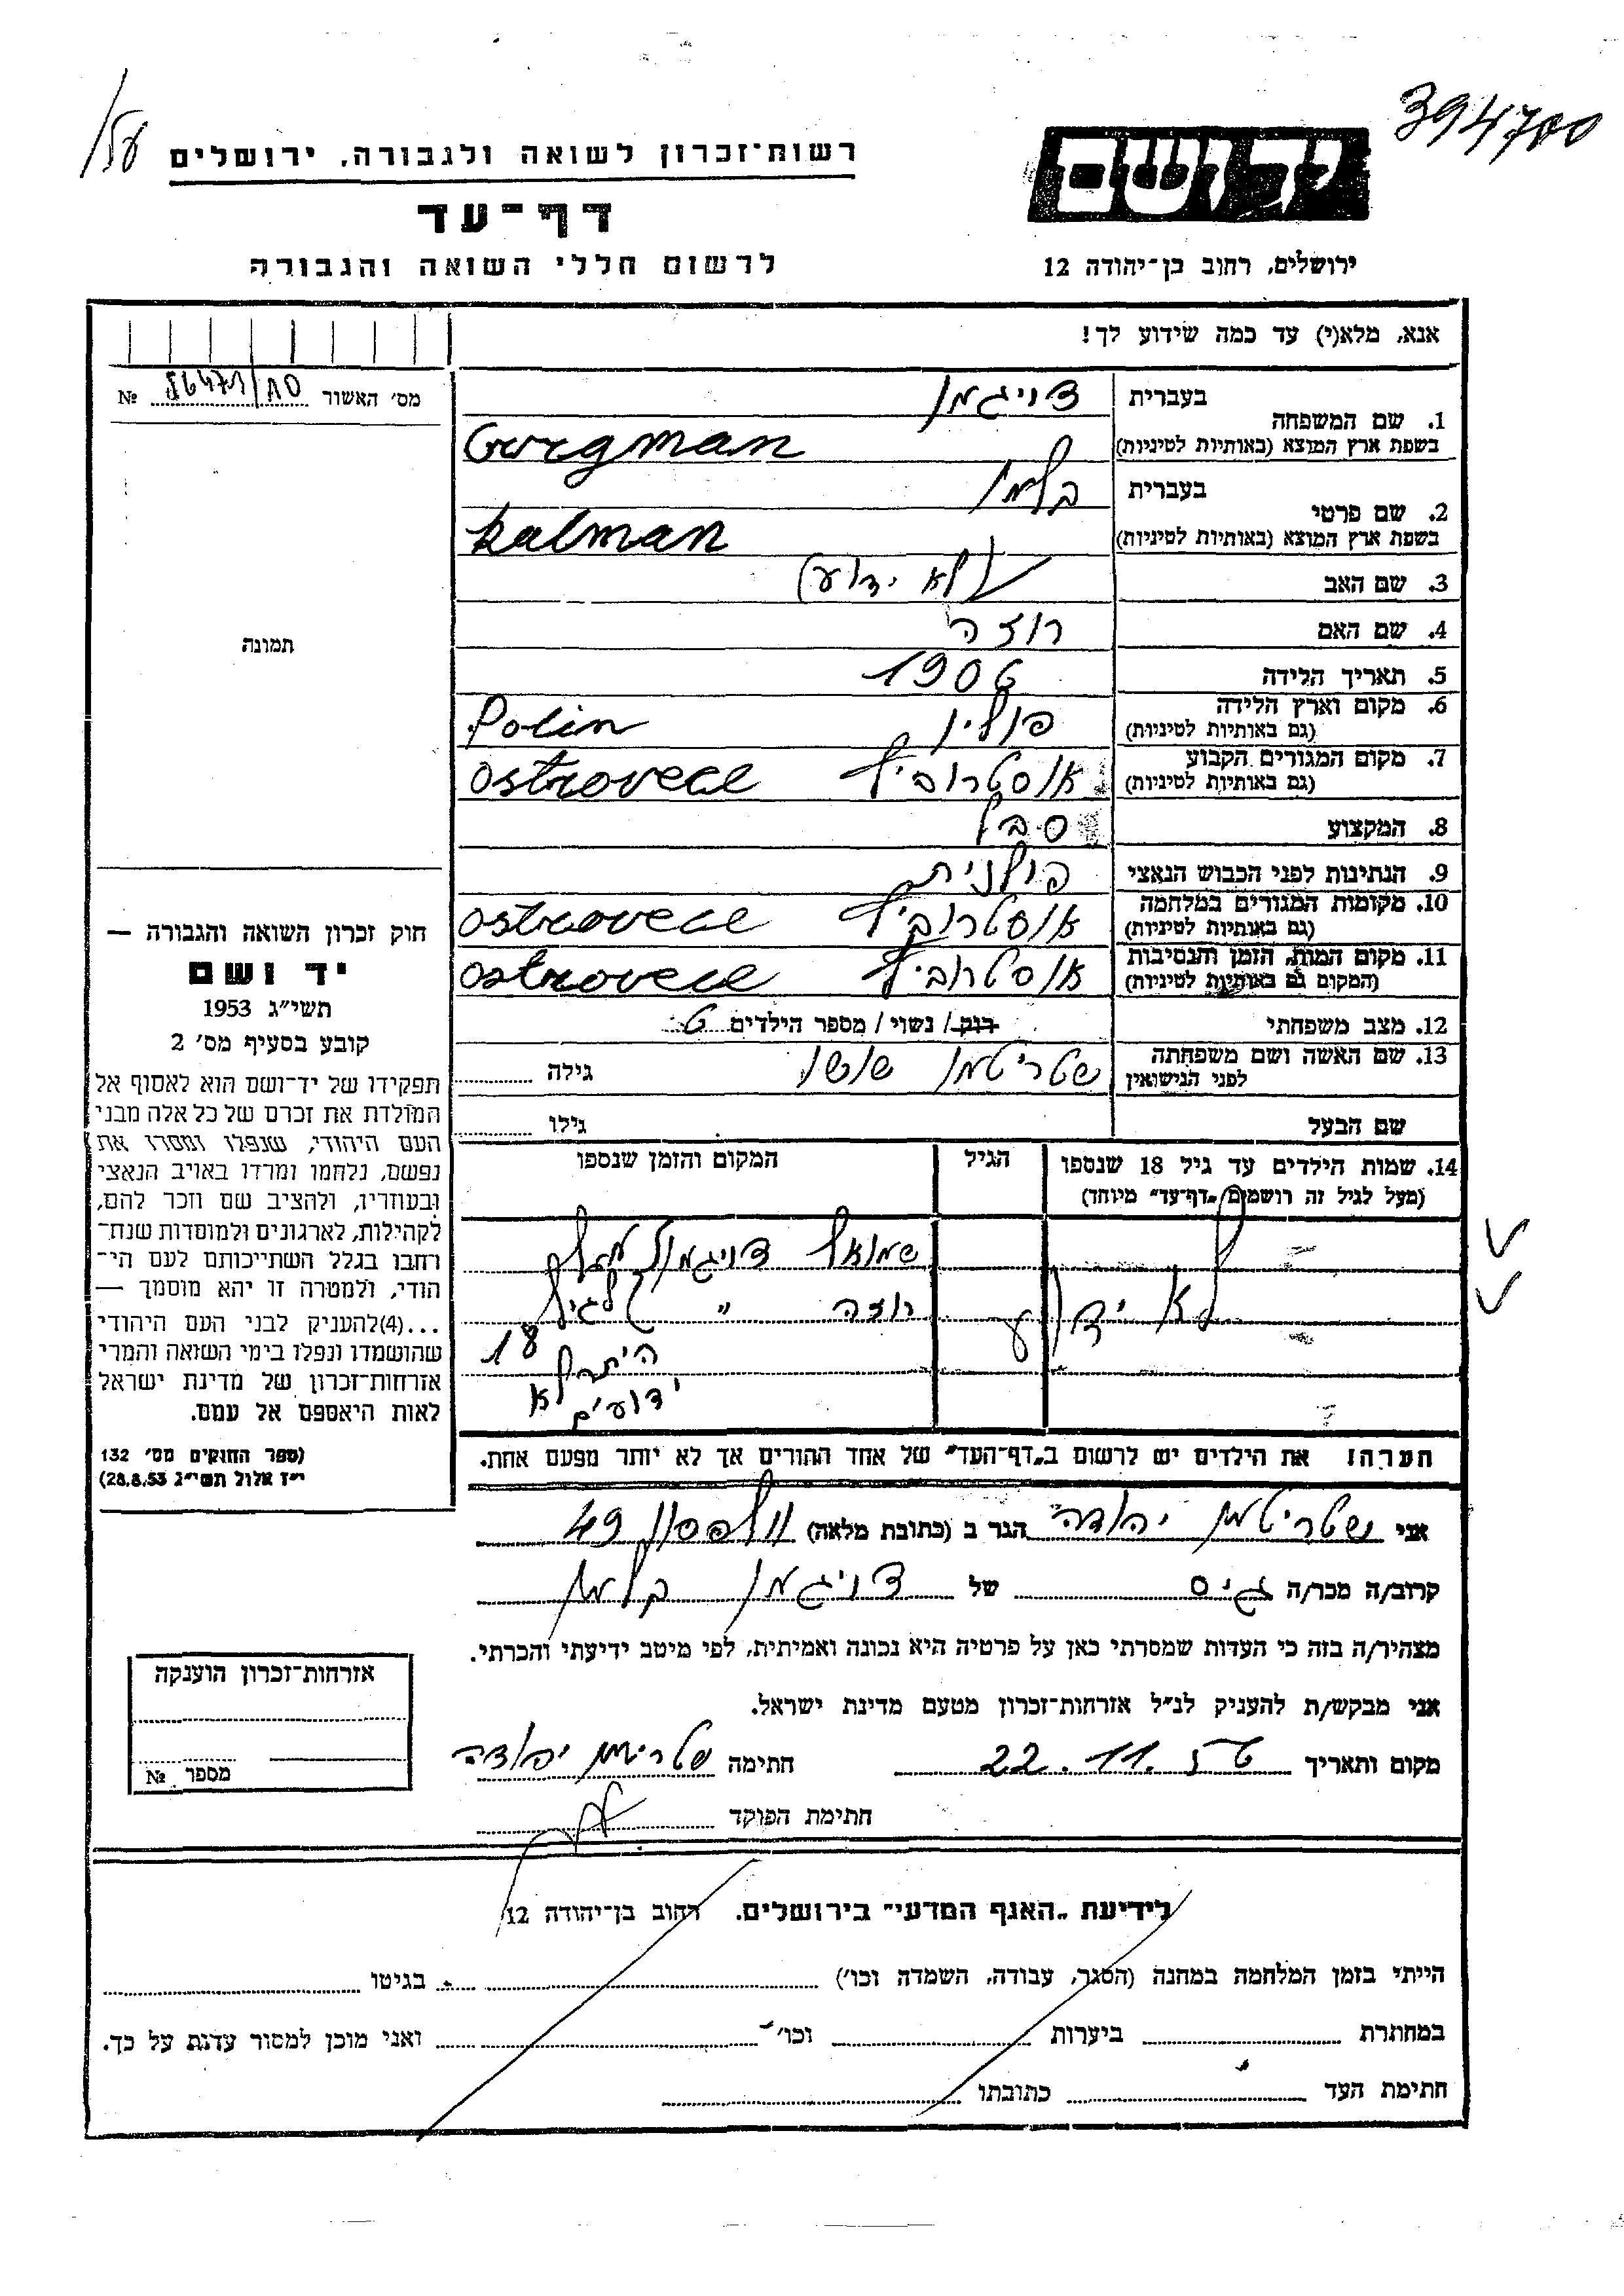 394700
158/
יד ושם
רשות־זכרון לשואה ולגבורה, ירושלים
דף־עד
ירושלים, רחוב בן־יהודה 12
לרשום חללי השואה והגבורה
אנא, מלא(י) עד כמה שידוע לך!
מס׳ האשור 86471/10 №
תמונה
1. שם המשפחה
בעברית צויגמן
בשפת ארץ המוצא (באותיות לטיניות)
2. שם פרטי
בעברית קלמן
בשפת ארץ המוצא (באותיות לטיניות) kalman
3. שם האב (לא ידוע)
4. שם האם רוזה
5. תאריך הלידה 1906
6. מקום וארץ הלידה פולין Polin
(גם באותיות לטיניות)
7. מקום המגורים הקבוע Ostrovece
(גם באותיות לטיניות)
8. המקצוע סבל
9. הנתינות לפני הכבוש הנאצי פולנית
10. מקומות המגורים במלחמה Ostrovece
(גם באותיות לטיניות)
11. מקום המות, הזמן והנסיבות Ostrovece
(המקום גם באותיות לטיניות)
12. מצב משפחתי רווק / נשוי / מספר הילדים 6
13. שם האשה ושם משפחתה שטריטמן גילה
לפני הנישואין
שם הבעל גילו
14. שמות הילדים עד גיל 18 שנספו הגיל המקום והזמן שנספו
(מעל לגיל זה רושמים „דף־עד״ מיוחד)
לא ידוע
שמואל צויגמן מעל
רוזה ״ לגיל
18
היתר לא
ידועים
הערה: את הילדים יש לרשום ב„דף־העד״ של אחד ההורים אך לא יותר מפעם אחת.
חוק זכרון השואה והגבורה —
יד ושם
תשי״ג 1953
קובע בסעיף מס׳ 2
תפקידו של יד־ושם הוא לאסוף אל
המולדת את זכרם של כל אלה מבני
העם היהודי, שנפלו ומסרו את
נפשם, נלחמו ומרדו באויב הנאצי
ובעוזריו, ולהציב שם וזכר להם,
לקהילות, לארגונים ולמוסדות שנח־
רחבו בגלל השתייכותם לעם הי־
הודי, ולמטרה זו יהא מוסמך —
...(4)להעניק לבני העם היהודי
שהושמדו ונפלו בימי השואה והמרי
אזרחות־זכרון של מדינת ישראל
לאות היאספם אל עמם.
(ספר החוקים מס׳ 132
י״ז אלול תשי״ג 28.8.53)
אני שטריטמן יהודה הגר ב (כתובת מלאה) וולפסון 49
קרוב/ה מכר/ה גיס של צויגמן קלמן
מצהיר/ה בזה כי העדות שמסרתי כאן על פרטיה היא נכונה ואמיתית, לפי מיטב ידיעתי והכרתי.
אני מבקש/ת להעניק לנ״ל אזרחות־זכרון מטעם מדינת ישראל.
מקום ותאריך 22.11 חתימה שטריטמן יהודה
חתימת הפוקד
אזרחות־זכרון הוענקה
מספר №
לידיעת „האגף המדעי״ בירושלים. רחוב בן־יהודה 12
הייתי בזמן המלחמה במחנה (הסגר, עבודה, השמדה וכו׳) בגיטו
במחתרת ביערות וכו׳ ואני מוכן למסור עדות על כך.
חתימת העד כתובתו